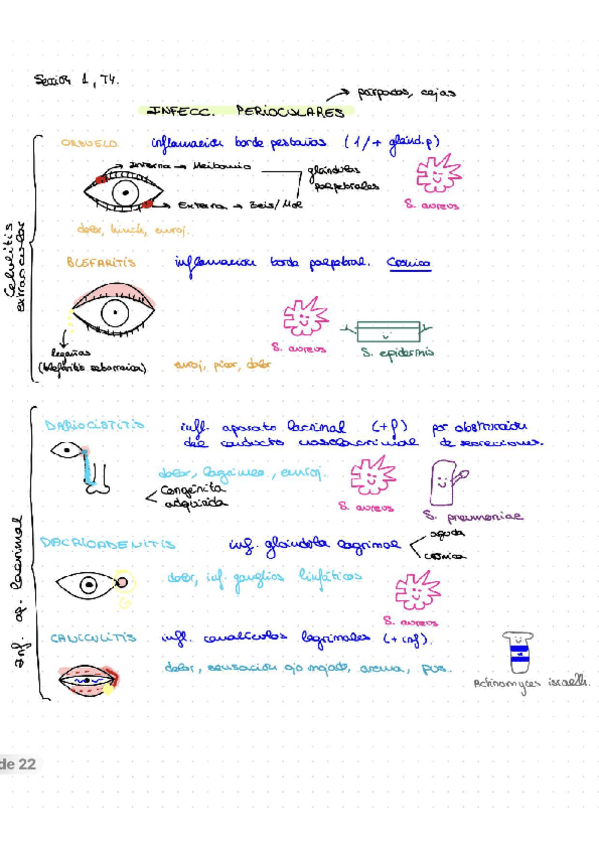 Sección 1, T4.
→ párpados, cejas
INFECC. PERIOCULARES
ORZUELO inflamación borde pestañas (1/+ gland.p)
Interna → Meibomio
glándulas
palpebrales
Externa → Zeis/Mol
S. aureus
dolor, hinch, enroj.
Celulitis
extraocular
BLEFARITIS inflamación borde palpebral. Crónica
S. aureus
S. epidermis
legañas
(blefaritis seborreica)
enroj, picor, dolor
DARIOCISTITIS inf. aparato lacrimal (+f) por obstrucción
del conducto nasolacrimal de secreciones.
dolor, lagrimeo, enroj.
Congénita
adquirida
S. aureus
S. pneumoniae
Inf. ap. lacrimal
DACRIOADENITIS inf. glándula lagrimal
aguda
crónica
dolor, inf. ganglios linfáticos
S. aureus
CANICULITIS infl. canalículos lagrimales (+inf).
dolor, sensación ojo mojado, arena, pus.
Achinomyces israelli.
de 22